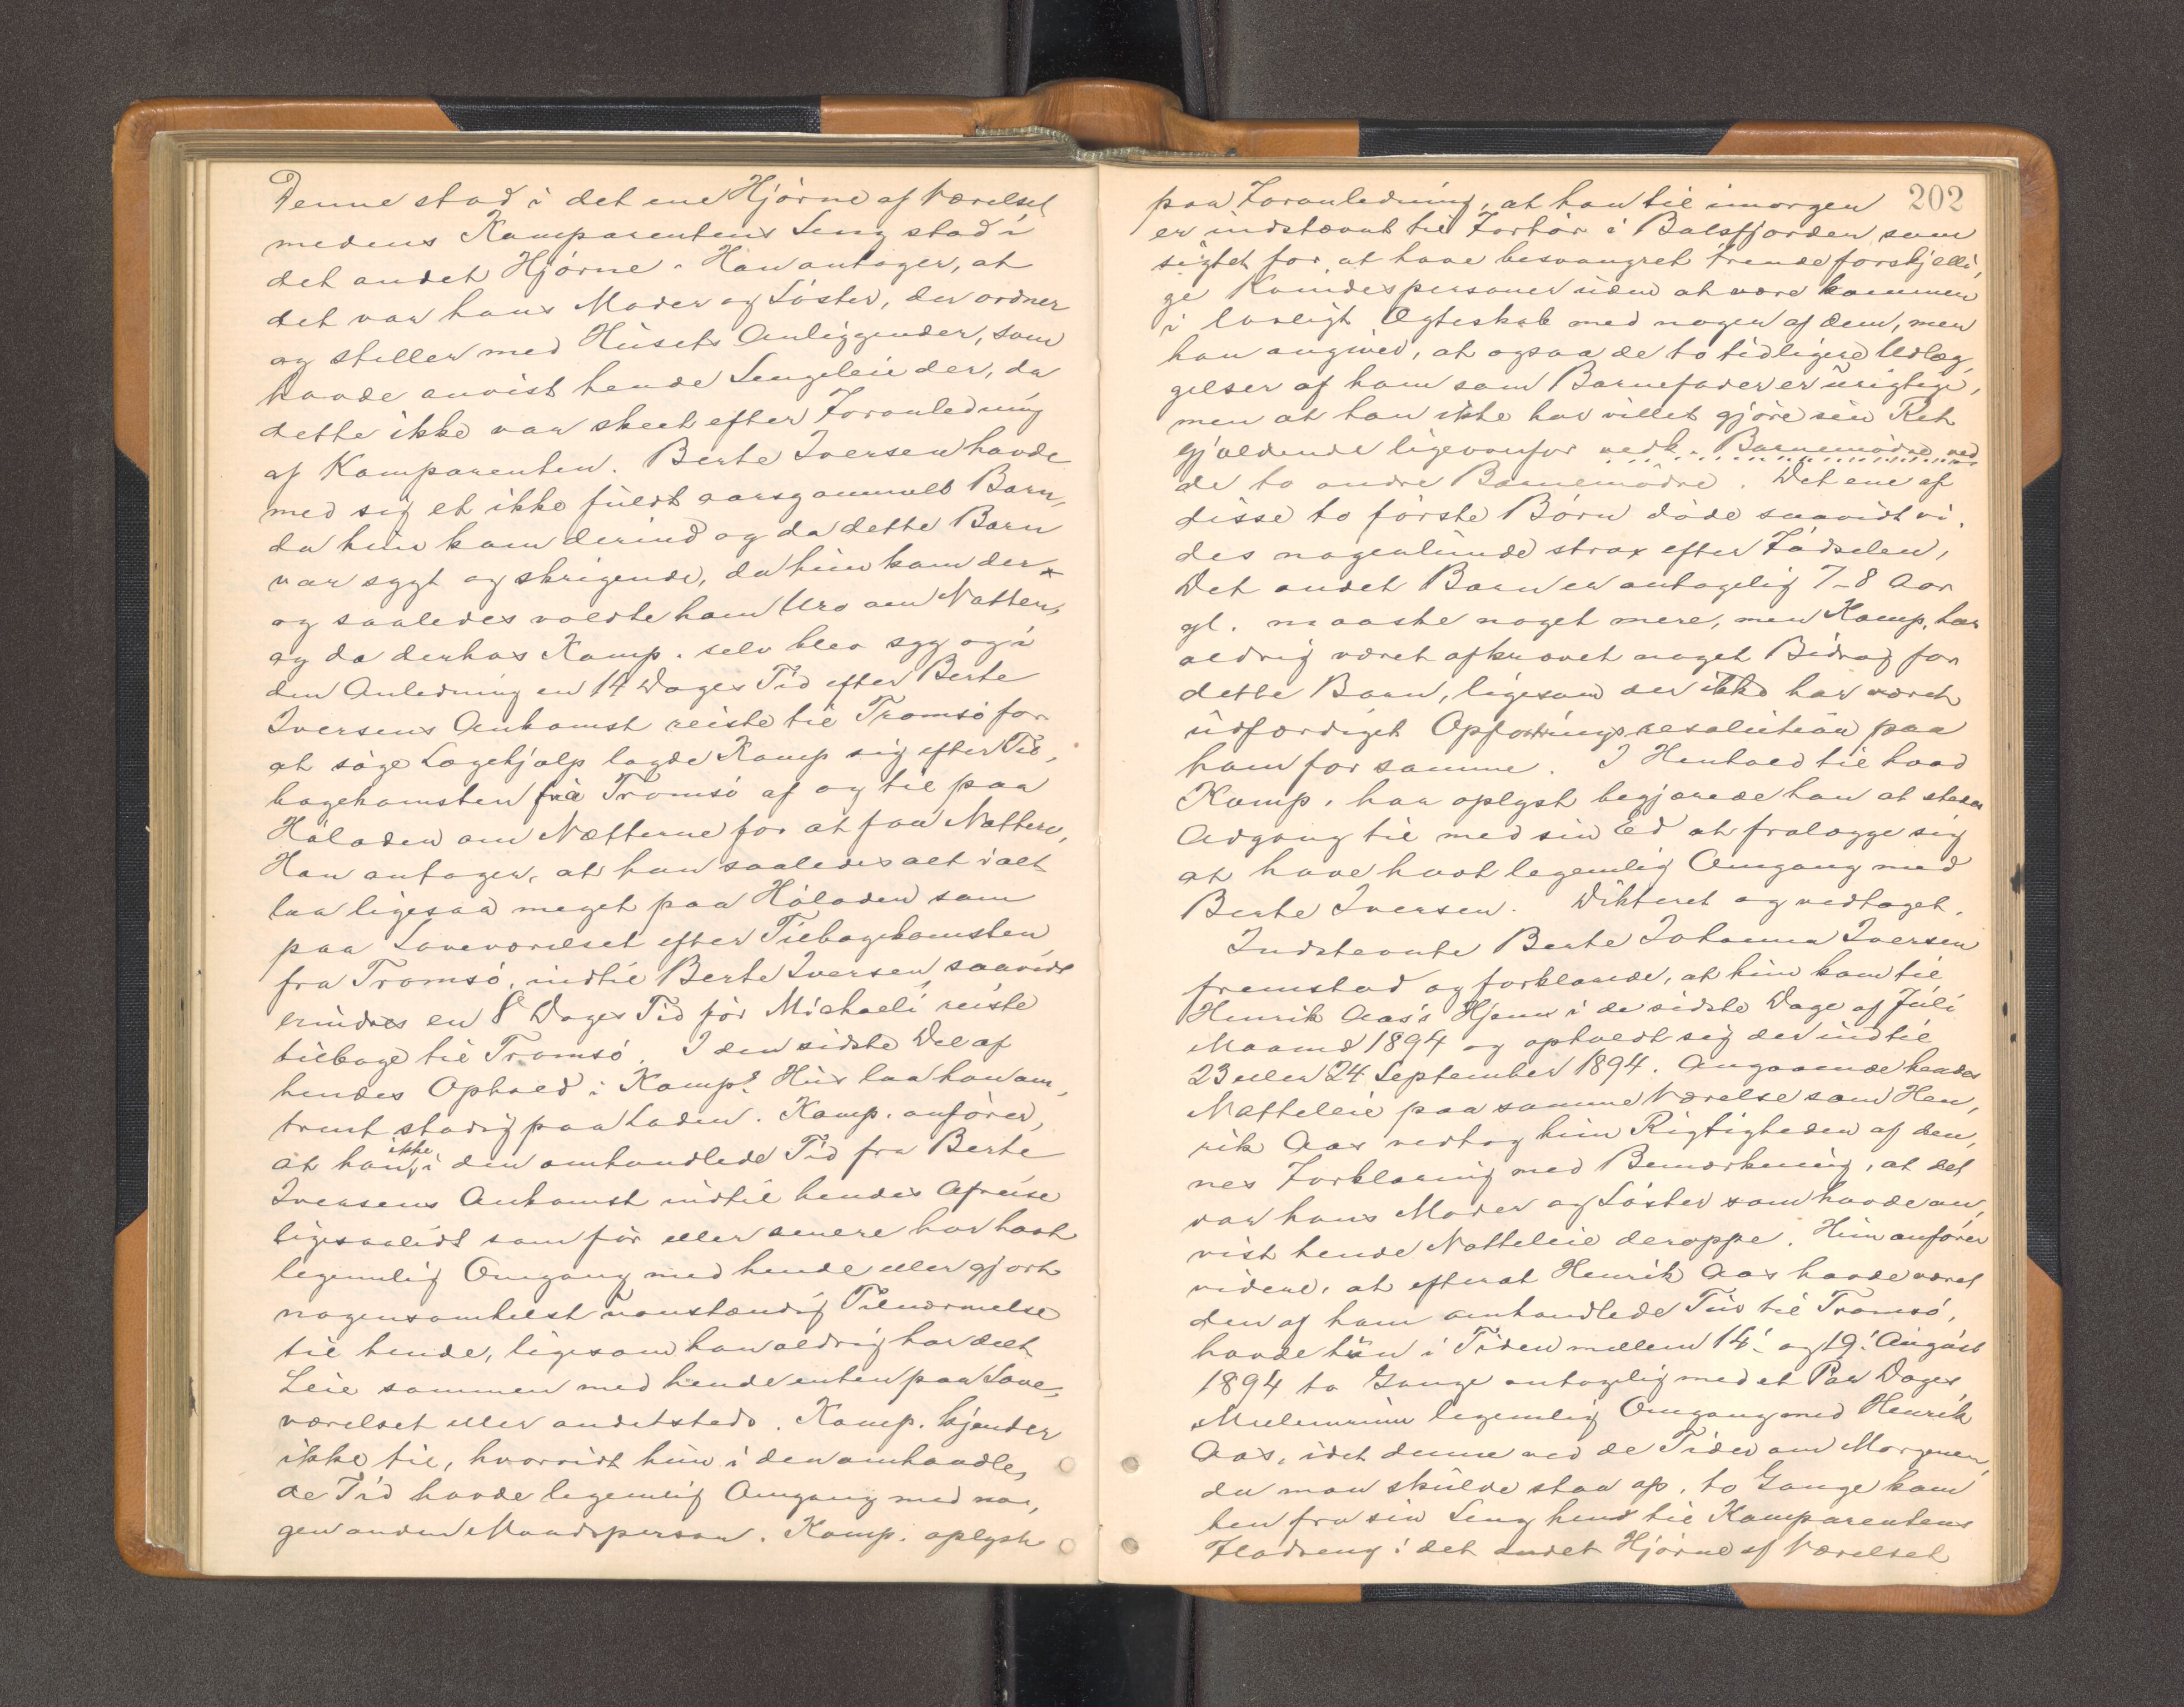 Denne stod i det ene Hjørne af Værelset
medens Komparentens Seng stod i
det andet Hjørne. Han antager, at
det var hans Moder og Søster, der ordner
og steller med Husets Anliggender, som
havde anvist hende Sengeleie der, da
dette ikke var skeet efter Foranledning
af Komparenten. Berte Iversen havde
med sig et ikke fuldt aarsgammelt Barn,
da hun kom derind og da dette Barn
var sygt og skrigende, da hun kom der
og saaledes voldte ham Uro om Natten,
og da derhos Komp. selv blev syg og i
den Anledning en 14 Dages Tid efter Berte
Iversens Ankomst reiste til Tromsø for
at søge Lægehjælp lagde Komp sig efter Til,
bagekomsten fra Tromsø af og til paa
Høladen om Nætterne for at faa Nattero,
Han antager, at han saaledes alt ialt
laa ligesaa meget paa Høladen som
paa Soveværelset efter Tilbagekomsten
fra Tromsø, indtil Berte Iversen, saavidt
erindres en 8 Dages Tid før Michaeli reiste
tilbage til Tromsø. I den sidste Del af
hendes Ophold i Komps Hus laa han om,
trent stadig paa Laden. Komp. anfører,
at han ikke i den omhandlede Tid fra Berte
Iversens Ankomst indtil hendes Afreise
ligesaalidt som før eller senere har havt
legemlig Omgang med hende eller gjort
nogensomhelst uanstændig Tilnærmelse
til hende, ligesom han aldrig har delt
Leie sammen med hende enten paa Sove,
værelset eller andetsteds. Komp. kjender
ikke til, hvorvidt hun i den omhandle,
de Tid havde legemlig Omgang med no,
gen anden Mandsperson. Komp. oplyste
202
paa Foranledning, at han til imorgen
er indstævnt til Forhør i Balsfjorden som
sigtet for at have besvangret trende forskjelli,
ge Kvindespersoner uden at være kommen
i lovligt Ægteskab med nogen af dem, men
han angiver, at ogsaa de to tidligere Udlæg,
gelser af ham som Barnefader er urigtige,
men at han ikke har villet gjøre sin Ret
gjældende ligeoverfor vedk. Barnemødre ved
de to andre Barnemødre. Det ene af
disse to første Børn døde saavidt vi,
des nogenlunde strax efter Fødselen,
Det andet Barn er antagelig 7-8 Aar
gl. maaske noget mere, men Komp. har
aldrig været afkrævet noget Bidrag for
dette Barn, ligesom der ikke har været
udfærdiget Opfostringsresolution paa
ham for samme. I Henhold til hvad
Komp. har oplyst begjærede han at stedes
Adgang til med sin Ed at fralægge sig
at have havt legemlig Omgang med
Berte Iversen. Dikteret og vedtaget.
Indstevnte Berte Johanna Iversen
fremstod og forklarede, at hun kom til
Henrik Aas's Hjem i de sidste Dage af Juli
Maaned 1894 og opholdt sig der indtil
23 eller 24 September 1894. Angaaende hendes
Natteleie paa samme Værelse som Hen,
rik Aas vedtog hun Rigtigheden af den,
nes Forklaring med Bemærkning, at det
var hans Moder og Søster som havde an,
vist hende Natteleie deroppe. Hun anfører
videre, at efterat Henrik Aas havde været
den af ham omhandlede Tur til Tromsø,
havde hun i Tiden mellem 14. og 19. August
1894 to Gange antagelig med et Par Dages
Mellemrum legemlig Omgang med Henrik
Aas, idet denne ved de Tider om Morgenen,
da man skulde staa op, to Gange kom
hen fra sin Seng hend til Komparentens
Fladseng i det andet Hjørne af Værelset